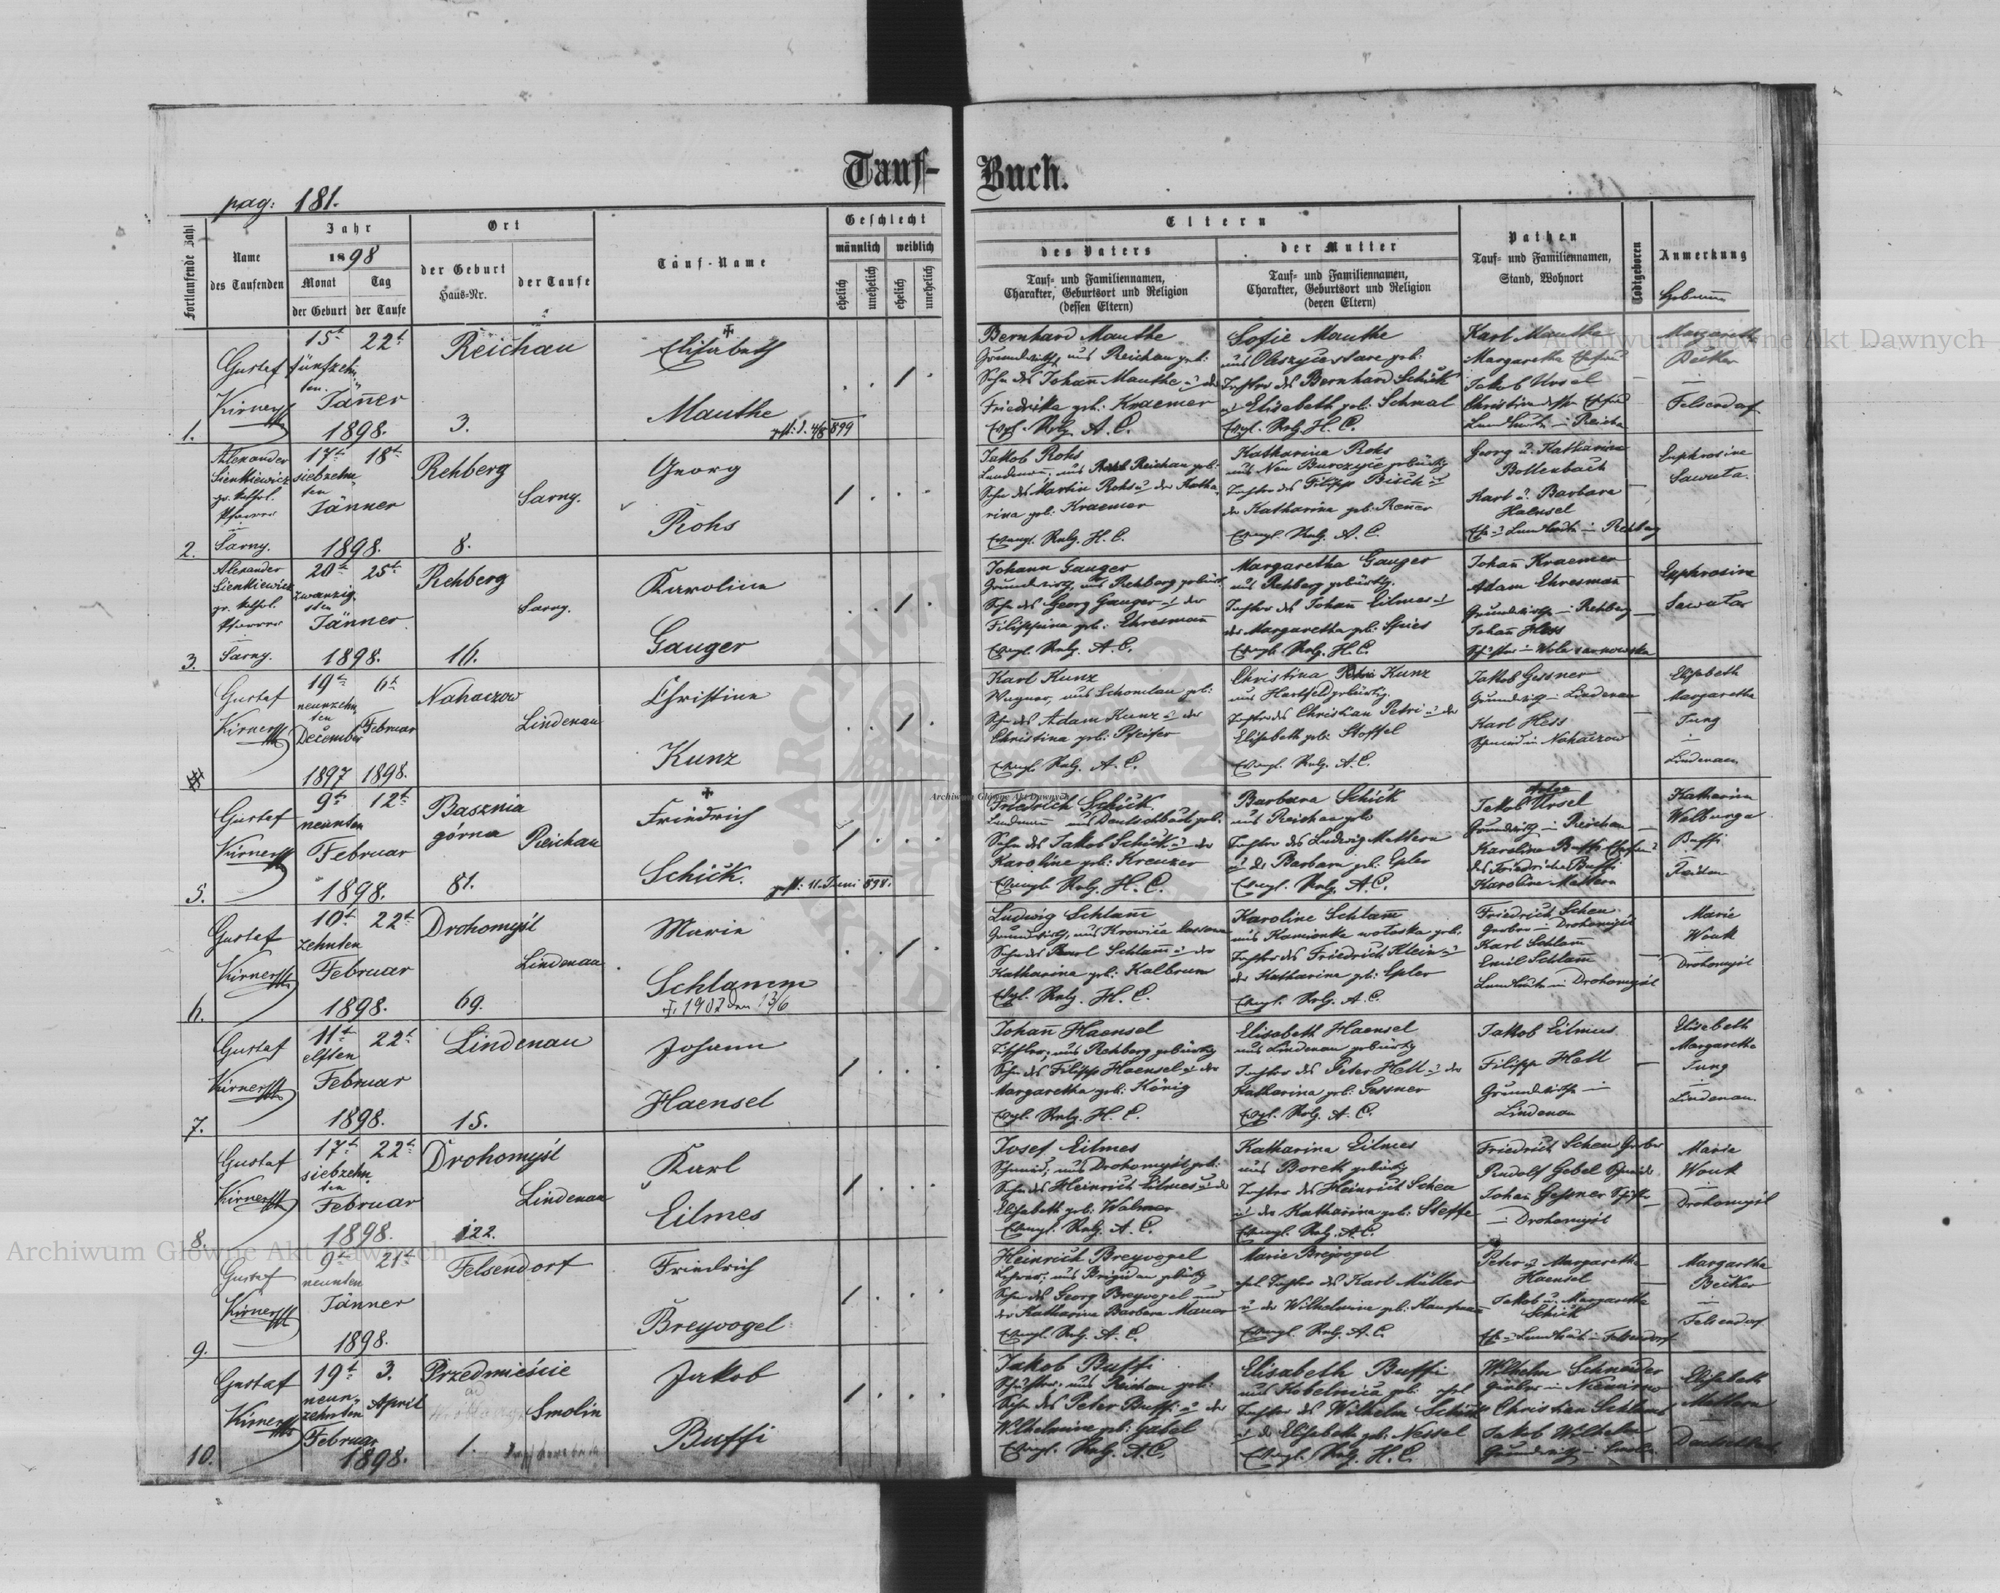 Tauf- Buch.
pag: 181.
Fortlaufende Zahl
Name
des Taufenden
Jahr
1898
Monat Tag
der Geburt der Taufe
Ort
der Geburt
Haus-Nr.
der Taufe
Tauf-Name
Geschlecht
männlich weiblich
ehelich unehelich ehelich unehelich
Eltern
des Vaters
Tauf- und Familiennamen,
Charakter, Geburtsort und Religion
(dessen Eltern)
der Mutter
Tauf- und Familiennamen,
Charakter, Geburtsort und Religion
(deren Eltern)
Pathen
Tauf- und Familiennamen,
Stand, Wohnort
Todtgeboren
Anmerkung
1.
Gustaf
Kirner
15t 22t
fünfzehn
ten
Jänner
1898.
Reichau
3.
Elisabeth
Mauthe
Bernhard Mauthe
Grundwirth, aus Reichau geb:
Sohn des Johann Mauthe u. der
Friedrika geb: Kraemer
Evgl. Relg. A. C.
Sofie Mauthe
Tochter des Bernhard Schick
u. Elisabeth geb: Schmal
Evgl. Relg. H. C.
Karl Mauthe
Margaretha
Jakob Ursel
Christina
Margareth
Becker
Felsendorf
2.
Alexander
Sienkiewicz
gr. kathol.
Pfarrer
in
Sarny.
17t 18t
siebzehn
ten
Jänner
1898.
Rehberg
8.
Sarny.
Georg
Rohs
Jakob Rohs
Landmann, aus Reichau geb:
Sohn des Martin Rohs u. der Katha
rina geb: Kraemer
Evangl. Relg. H. C.
Katharina Rohs
Tochter des Filipp Bisch u.
der Katharina geb: Renner
Evangl. Relg. A. C.
Georg u. Katharina
Bollenbach
Karl u. Barbara
Haensel
Euphrosine
Sawuta
3.
Alexander
Sienkiewicz
gr. kathol.
Pfarrer
Sarny.
20t 25t
zwanzig
sten
Jänner
1898.
Rehberg
16.
Sarny.
Karolina
Gauger
Johann Gauger
Grundwirth, aus Rehberg gebürt.
Sohn des Georg Gauger u. der
Filippina geb: Ehresmann
Evangl. Relg. A. C.
Margaretha Gauger
aus Rehberg gebürtig.
Tochter des Johann Eilmes u.
der Margaretha geb: Spies
Evangl. Relg. H. C.
Johann Kraemer
Adam Ehresmann
Johann Hess
Euphrosine
4.
Gustaf
Kirner
19t 6t
neunzehn
ten
December Februar
1897 1898.
Nahaczow
Lindenau
Christina
Kunz
Karl Kunz
Wagner, aus Schomlau geb:
Sohn des Adam Kunz u. der
Christina geb: Pfeifer
Evangl. Relg. A. C.
Christina Kunz
aus Hartfeld gebürtig.
Tochter des Christian Petri u. der
Elisabeth geb: Stoffel
Evangl. Relg. A. C.
Jakob Gessner
Grundwirth in Lindenau
Karl Hess
Schmied in Nahaczow
Elisabeth
Margaretha
Jung
in
Lindenau
5.
Gustaf
Kirner
9t 12t
neunten
Februar
1898.
Basznia
górna
81.
Reichau
Friedrich
Schick.
gest: 11. Juni 898.
Friedrich Schick
Landmann aus Deutschbach geb.
Sohn des Jakob Schick u. der
Karoline geb: Kreuzer
Evangl. Relg. H. C.
Barbara Schick
aus Reichau geb:
Tochter des Ludwig Mattern
u. der Barbara geb: Epler
Evangl. Relg. A. C.
Jakob Ursel
Grundwirth in Reichau
Karoline Buffi
des Friedrich Buffi
Karoline Mattern
Katharina
Walburga
Buffi
6.
Gustaf
Kirner
10t 22t
zehnten
Februar
1898.
Drohomyśl
69.
Lindenau
Maria
Schlamm
† 1902 den 13/6
Ludwig Schlamm
Sohn des Karl Schlamm u. der
Katharina geb: Kalbrun
Evgl. Relg. H. C.
Karoline Schlamm
aus Kamionka wołoska geb.
Tochter des Friedrich Klein u.
der Katharina geb: Epler
Evangl. Relg. A. C.
Friedrich Schen
Gerber in Drohomyśl
Karl Schlamm
Emil Schlamm
Landleute in Drohomyśl
Marie
Wouk
Drohomyśl
7.
Gustaf
Kirner
11t 22t
elften
Februar
1898.
Lindenau
15.
Johann
Haensel
Johann Haensel
Tischler, aus Rehberg gebürtig
Sohn des Filipp Haensel u. der
Margaretha geb: König
Evgl. Relg. H. C.
Elisabeth Haensel
aus Lindenau gebürtig
Tochter des Peter Hell u. der
Katharina geb: Gessner
Evgl. Relg. A. C.
Jakob Eilmes
Filipp Hell
Grundwirthe in
Lindenau
Elisabeth
Margaretha
Jung
in
Lindenau.
8.
Gustaf
Kirner
17t 22t
siebzehn
ten
Februar
1898.
Drohomyśl
122.
Lindenau
Karl
Eilmes
Josef Eilmes
Schmied, aus Drohomyśl geb:
Sohn des Heinrich Eilmes u. der
Elisabeth geb: Walmer
Evangl. Relg. A. C.
Katharina Eilmes
aus Borek gebürtig
Tochter des Heinrich Schen
u. der Katharina geb: Steffe
Evangl. Relg. A. C.
Friedrich Schen Gerber
Rudolf Gebel Schmied
Johann Gessner
in Drohomyśl
Maria
Wouk
Drohomyśl
9.
Gustaf
Kirner
9t 21t
neunten
Jänner
1898.
Felsendorf
Friedrich
Breyvogel
Heinrich Breyvogel
Lehrer, aus Brigidau gebürtig
Sohn des Georg Breyvogel und
der Katharina Barbara Mauer
Evangl. Relg. A. C.
Marie Breyvogel
Tochter des Karl Müller
u. der Wilhelmine geb: Kaufmann
Evangl. Relg. A. C.
Peter u. Margaretha
Haensel
Jakob u. Margaretha
Schick
Margaretha
Becker
in
Felsendorf
10.
Gustaf
Kirner
19t 3.
neun-
zehnten April
Februar
1898.
Przedmieście
1.
Smolin
Jakob
Buffi
Jakob Buffi
Schuster, aus Reichau geb:
Sohn des Peter Buffi u. der
Wilhelmine geb: Gabel
Evangl. Relg. A. C.
Elisabeth Buffi
aus Kobelnica geb:
Tochter des Wilhelm Schick
u. der Elisabeth geb: Nessel
Evangl. Relg. H. C.
Wilhelm Schneider
Christian Schlamm
Jakob Wilhelm
Grundwirth in Smolin
Elisabeth
Mattern
Archiwum Główne Akt Dawnych
Archiwum Główne Akt Dawnych
Archiwum Główne Akt Dawnych